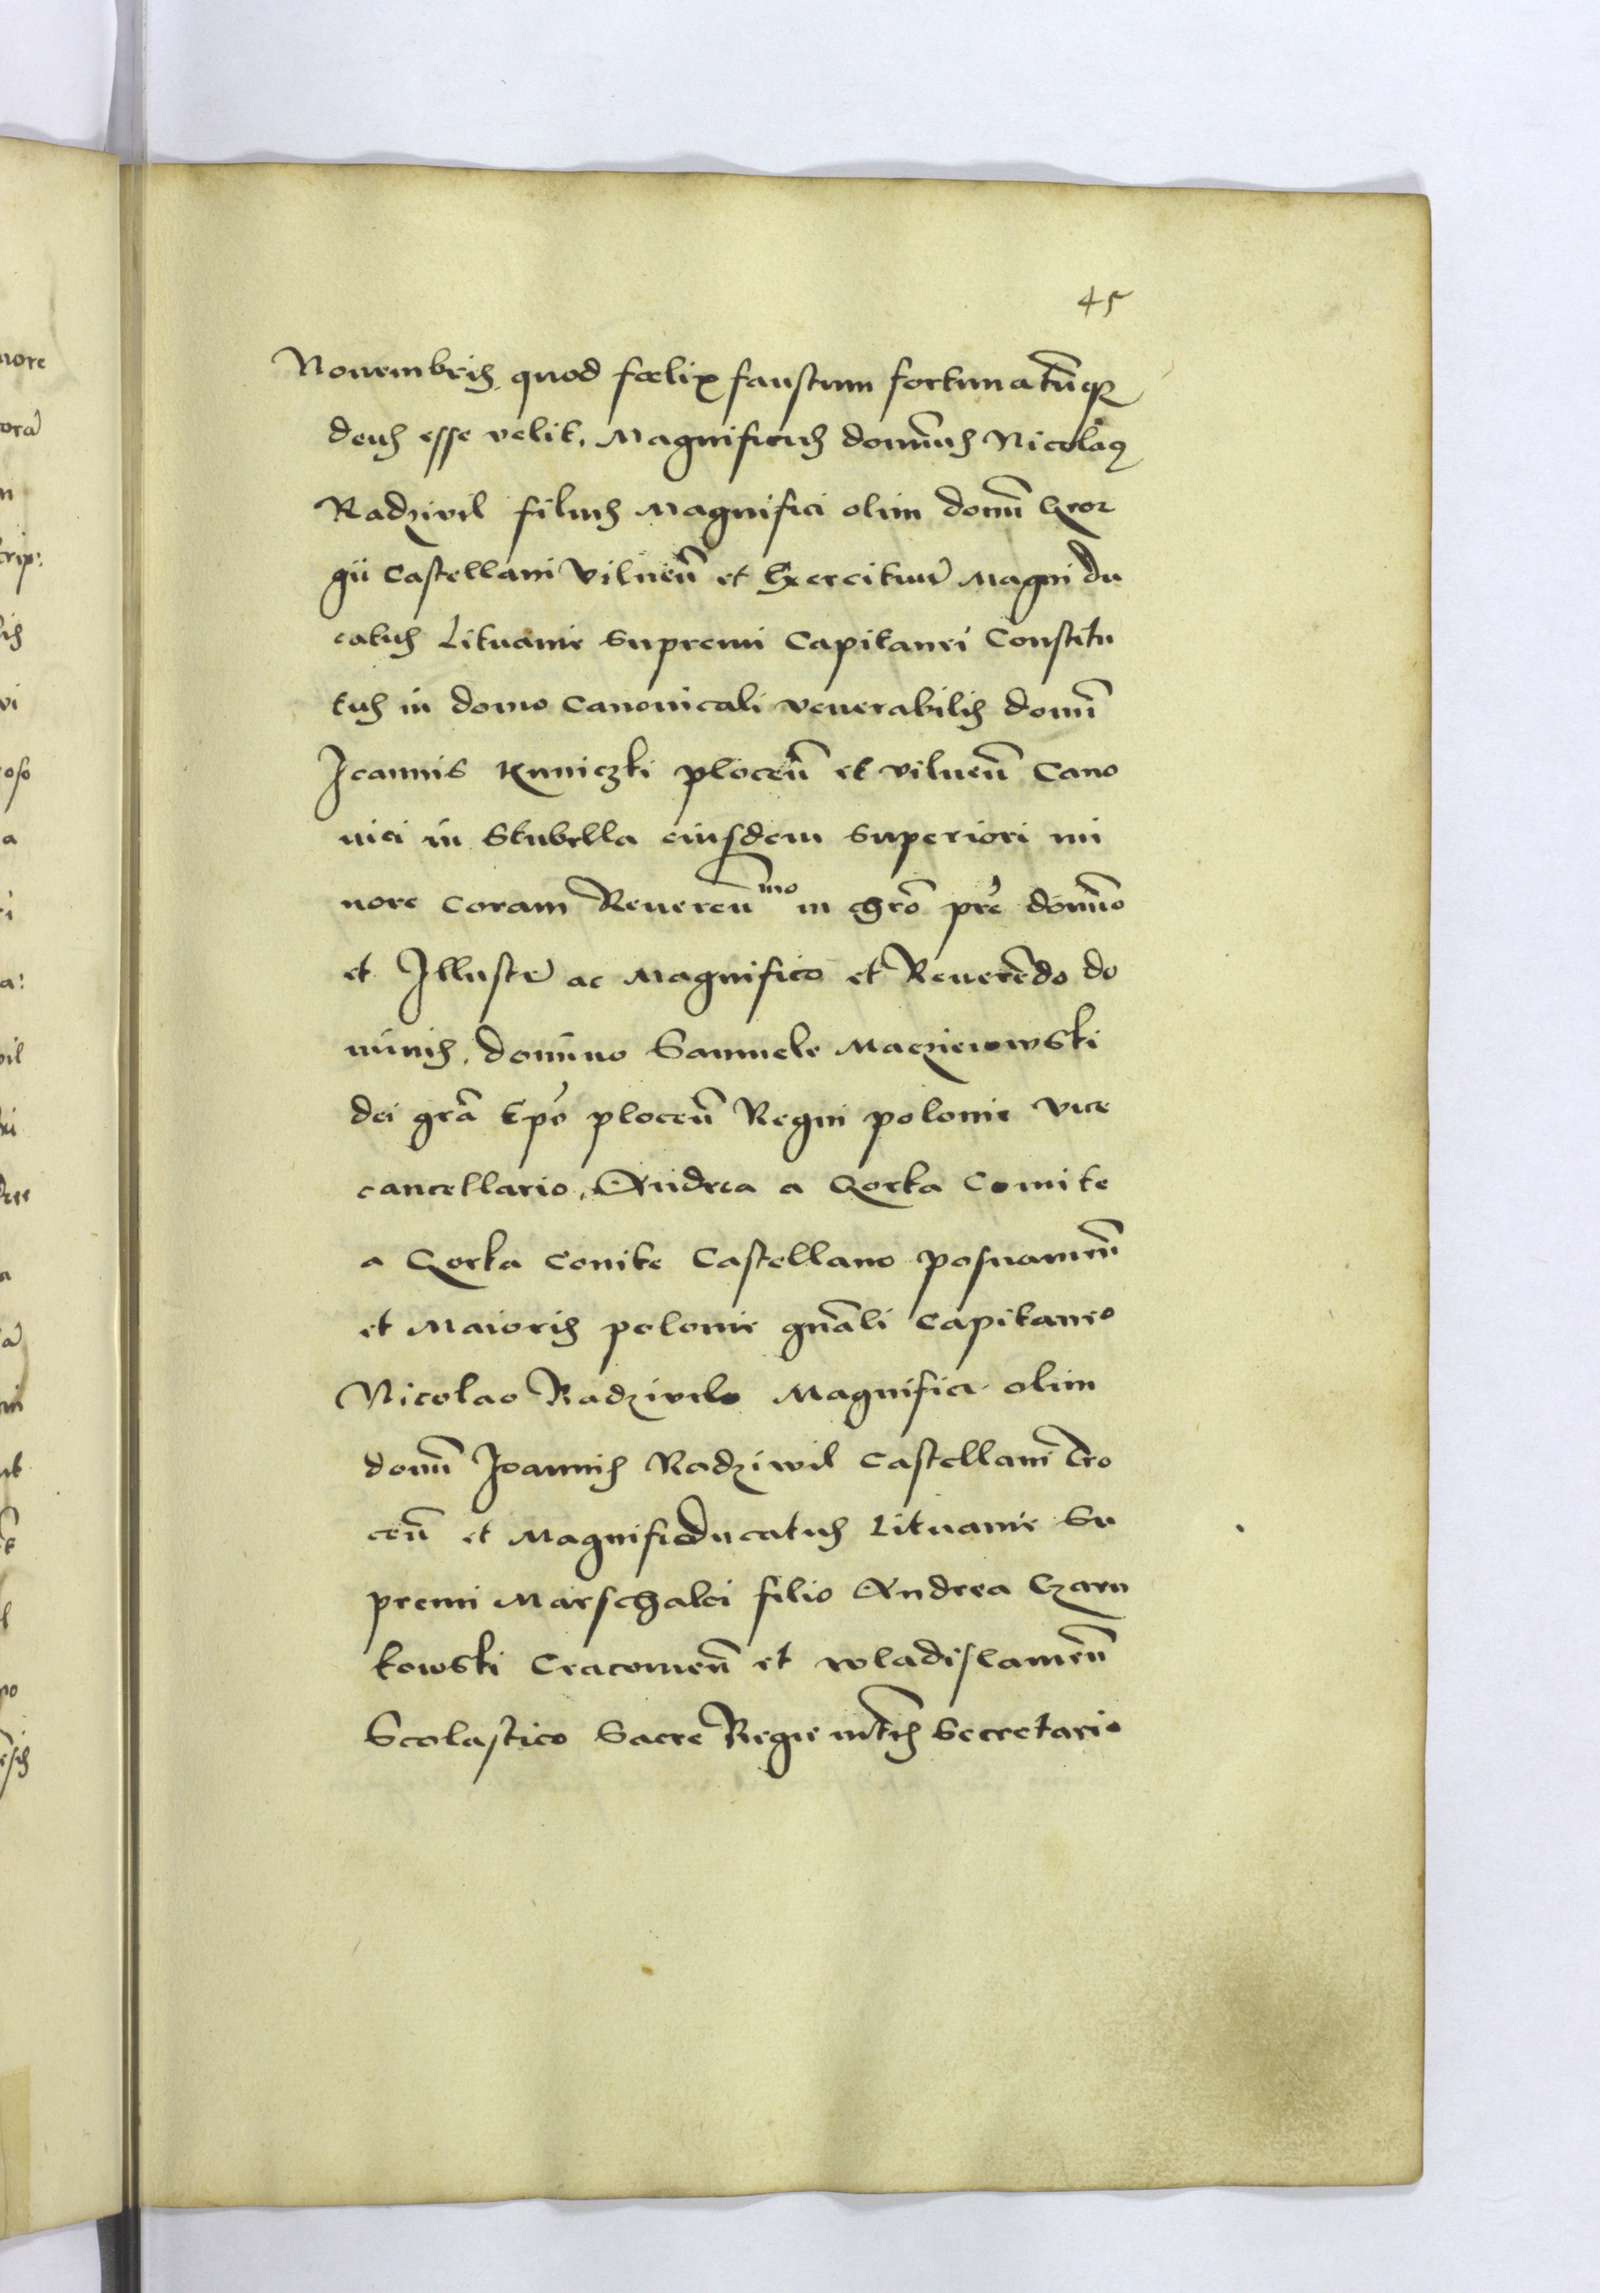 45
Nouembris quod fœlix faustum fortunatũq̢
deus esse velit. Magnificus dominus Nicolaꝯ
Radzivil filius Magnifici olim domĩ Geor
gii Castellani Vilneñ et Exercituũ Magni du
catus Lituanie Supremi Capitanei Constitu
tus in domo Canonicali venerabilis domĩ
Joannis Kuniczki ploceñ et vilneñ Cano
nici in Stubella eiusdem Superiori mi
nore coram Reuereñmo in chrõ prẽ domĩno
et Illustr̃ ac Magnifico et Reuerẽdo do
minis, domino Samuele Macziewowski
dei grã Epõ ploceñ Regni polonie vice
cancellario, Andrea a Gorka Comite
a Gorka Comite Castellano posnanieñ
et Maioris polonie gnãli Capitaneo
Nicolao Radzivilo Magnifici olim
domĩ Joannis Radziwil Castellani Tro
ceñ et Magnifi ducatus Lituanie Su
premi Marschalci filio Andrea Czarn
kowski Cracovieñ et wladislavieñ
Scolastico Sacre Regie mtis Secretario
nore
orã
n
crip:
is
vi
oso
a
i
a:
vil